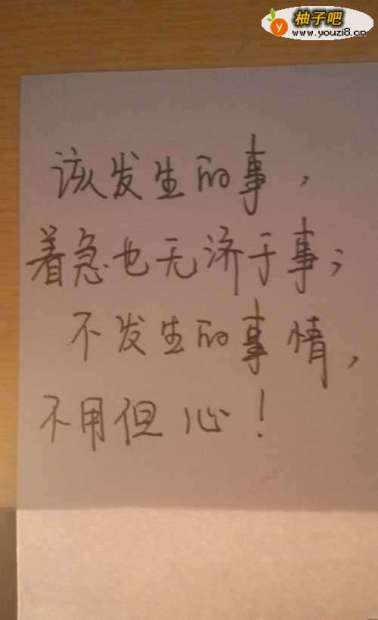 柚子吧
www.youzi8.cn
该发生的事，
着急也无济于事；
不发生的事情，
不用但心！